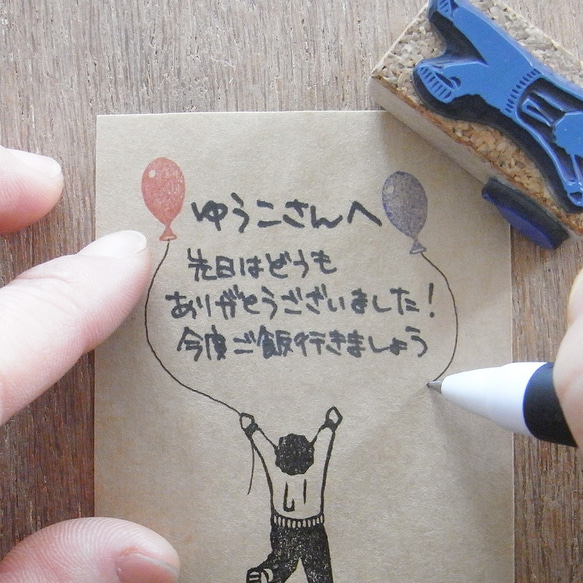 ゆうこさんへ
先日はどうも
ありがとうございました!
今度ご飯行きましょう